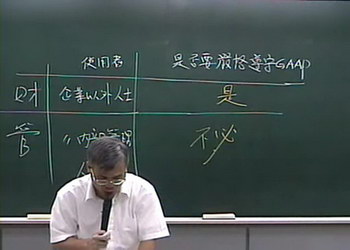 使用者 是否要嚴格遵守GAAP
財 企業以外人士 是
管 〃內部管理 不必
人